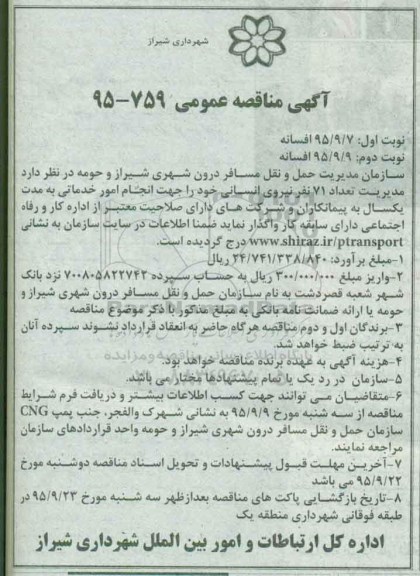 شهرداری شیراز
آگهی مناقصه عمومی ۷۵۹-۹۵
نوبت اول: ۹۵/۹/۷ افسانه
نوبت دوم: ۹۵/۹/۹ افسانه
سازمان مدیریت حمل و نقل مسافر درون شهری شیراز و حومه در نظر دارد
مدیریت تعداد ۷۱ نفر نیروی انسانی خود را جهت انجام امور خدماتی به مدت
یکسال به پیمانکاران و شرکت های دارای صلاحیت معتبر از اداره کار و رفاه
اجتماعی دارای سابقه کار واگذار نماید ضمنا اطلاعات در سایت سازمان به نشانی
www.shiraz.ir/ptransport درج گردیده است.
۱-مبلغ برآورد: ۲۴/۷۴۱/۳۳۸/۸۴۰ ریال
۲-واریز مبلغ ۳۰۰/۰۰۰/۰۰۰ ریال به حساب سپرده ۷۰۰۸۰۵۸۲۲۷۴۲ نزد بانک
شهر شعبه قصردشت به نام سازمان حمل و نقل مسافر درون شهری شیراز و
حومه یا ارائه ضمانت نامه بانکی به مبلغ مذکور با ذکر موضوع مناقصه
۳-برندگان اول و دوم مناقصه هرگاه حاضر به انعقاد قرارداد نشوند سپرده آنان
به ترتیب ضبط خواهد شد.
۴-هزینه آگهی به عهده برنده مناقصه خواهد بود.
۵-سازمان در رد یک یا تمام پیشنهادها مختار می باشد.
۶-متقاضیان می توانند جهت کسب اطلاعات بیشتر و دریافت فرم شرایط
مناقصه از سه شنبه مورخ ۹۵/۹/۹ به نشانی شهرک والفجر، جنب پمپ CNG
سازمان حمل و نقل مسافر درون شهری شیراز و حومه واحد قراردادهای سازمان
مراجعه نمایند.
۷-آخرین مهلت قبول پیشنهادات و تحویل اسناد مناقصه دوشنبه مورخ
۹۵/۹/۲۲ می باشد
۸-تاریخ بازگشایی پاکت های مناقصه بعدازظهر سه شنبه مورخ ۹۵/۹/۲۳ در
طبقه فوقانی شهرداری منطقه یک
اداره کل ارتباطات و امور بین الملل شهرداری شیراز